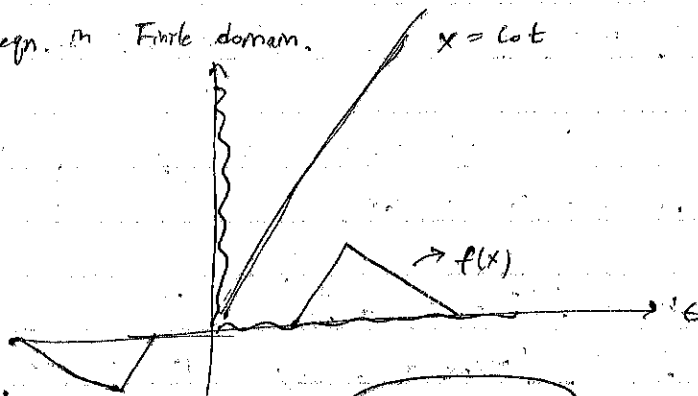 eqn. in Finite domain.
x = Cot
f(x)